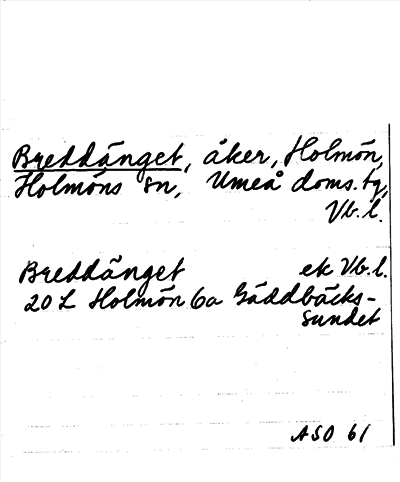 Breddänget, åker, Holmön,
Holmöns sn, Umeå doms. tg,
Vb. l.
Breddänget ek Vb. l.
20 L Holmön 6a Gäddbäcks-
sundet
ASO 61